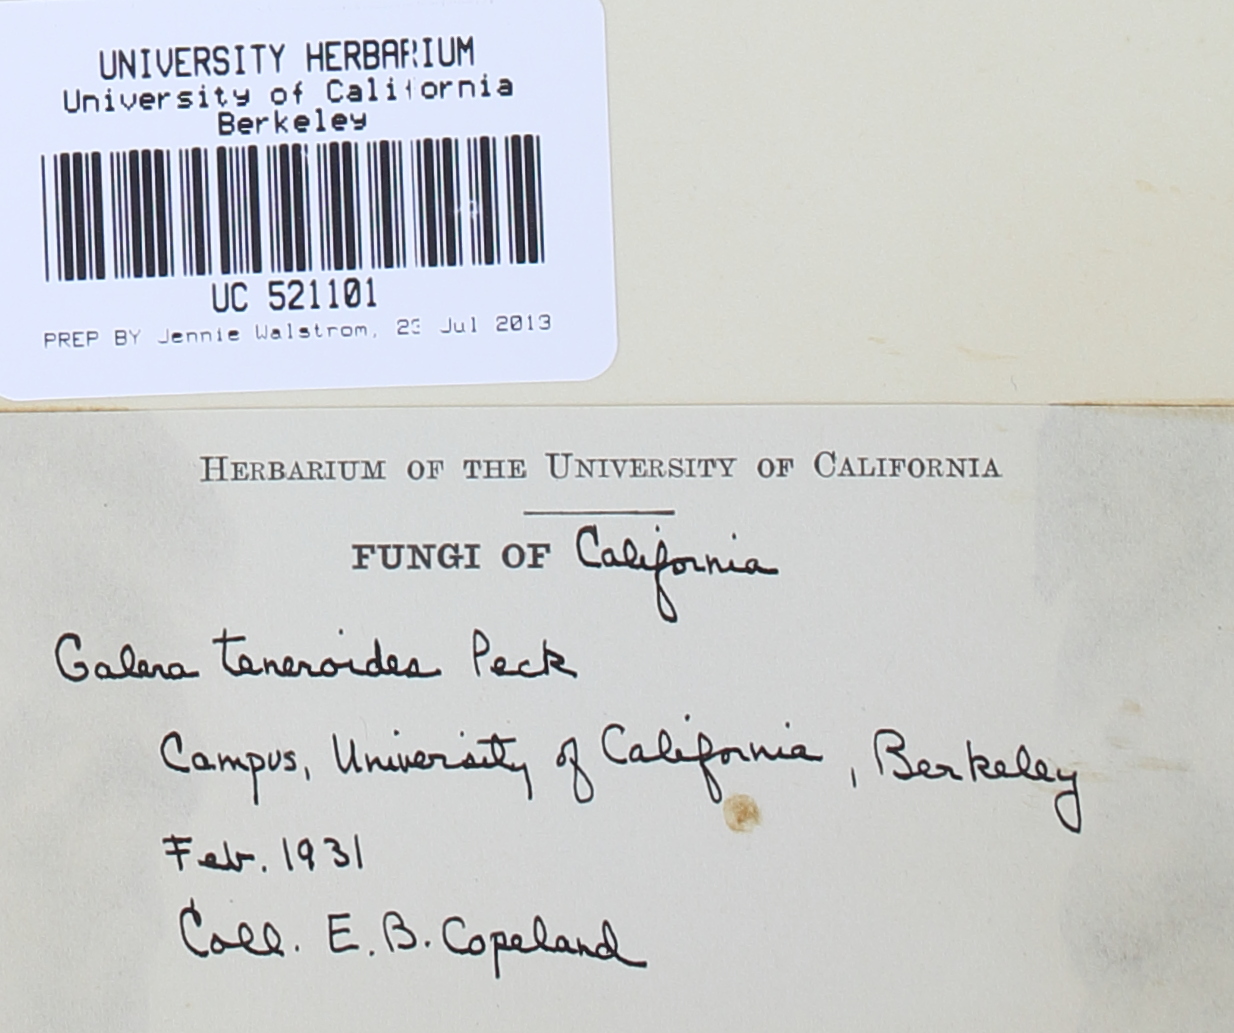 UNIVERSITY HERBARIUM
University of California
Berkeley
UC 521101
PREP BY Jennie Walstrom, 23 Jul 2013
HERBARIUM OF THE UNIVERSITY OF CALIFORNIA
FUNGI OF California
Galera teneroides Peck
Campus, University of California, Berkeley
Feb. 1931
Coll. E.B. Copeland